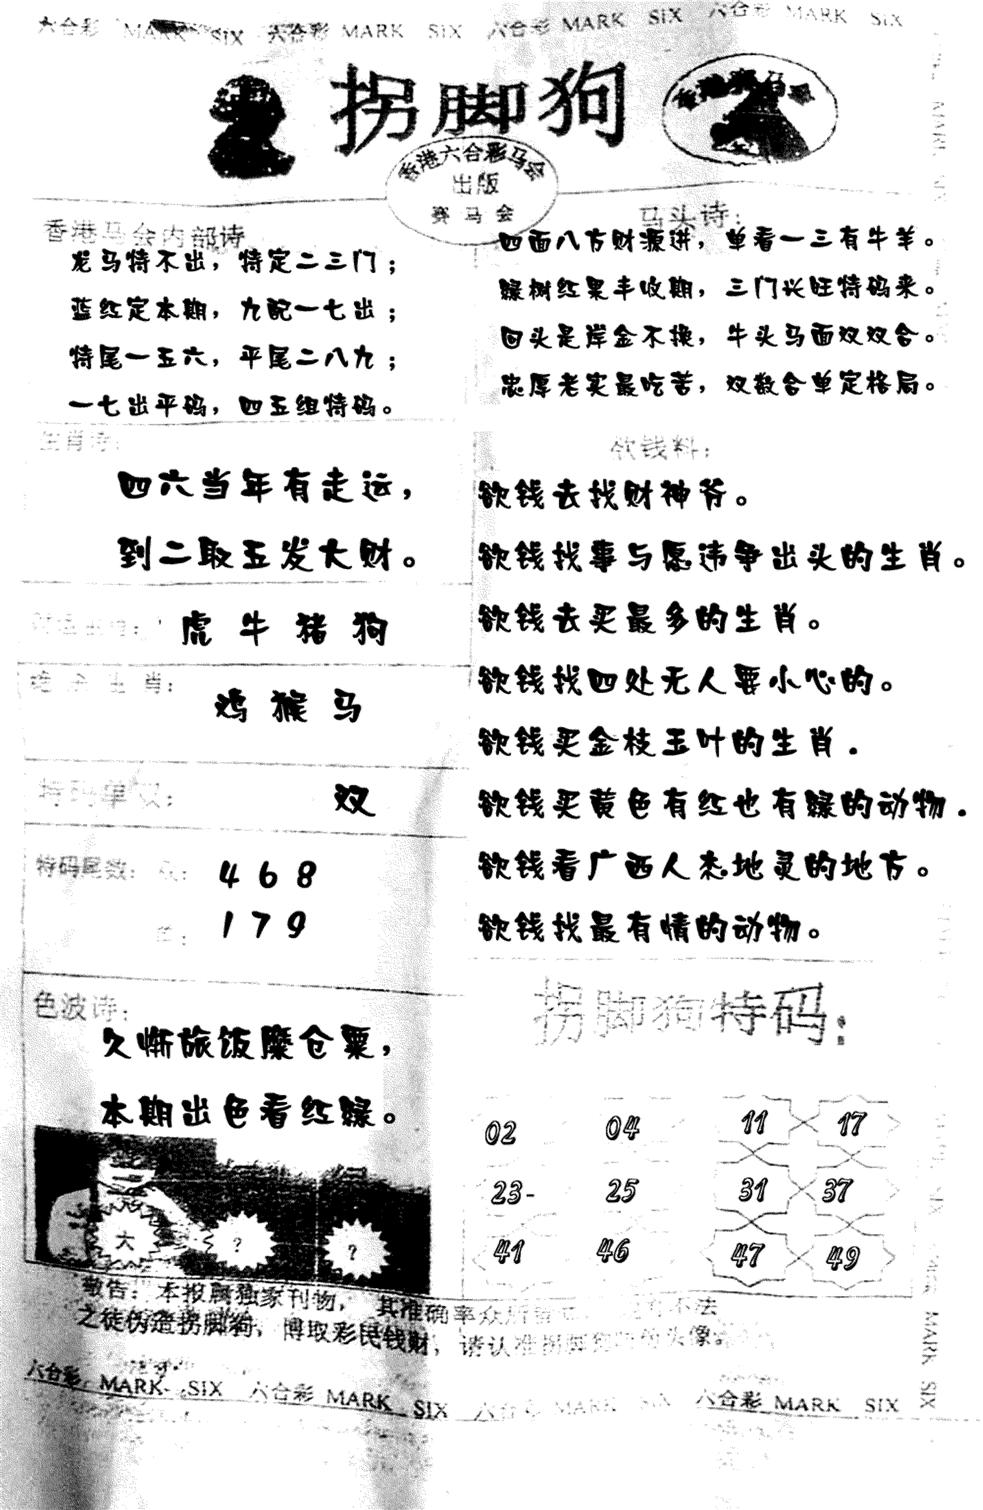 六合彩 MARK SIX 六合彩 MARK SIX 六合彩 MARK SIX 六合彩 MARK SIX
拐脚狗
香港赛马会
香港六合彩马会
出版
赛马会
香港马会内部诗
龙马特不出，特定二三门；
蓝红定本期，九配一七出；
特尾一五六，平尾二八九；
一七出平码，四五组特码。
马头诗：
四面八方财源进，单看一三有牛羊。
绿树红果丰收期，三门兴旺特码来。
回头是岸金不换，牛头马面双双合。
忠厚老实最吃苦，双数合单定格局。
生肖诗：
四六当年有走运，
到二取五发大财。
虎牛猪狗
绝杀生肖：
鸡猴马
特码单双：
双
特码尾数：双：468
单：179
色波诗：
久惭旅饭糜仓粟，
本期出色看红绿。
大 ? ?
欲钱料：
欲钱去找财神爷。
欲钱找事与愿违争出头的生肖。
欲钱去买最多的生肖。
欲钱找四处无人要小心的。
欲钱买金枝玉叶的生肖.
欲钱买黄色有红也有绿的动物.
欲钱看广西人杰地灵的地方。
欲钱找最有情的动物。
拐脚狗特码：
02 04 11 17
23- 25 31 37
41 46 47 49
敬告：本报属独家刊物，其准确率众所皆 不法
之徒伪造拐脚狗，博取彩民钱财，请认准拐脚狗 头像。
六合彩 MARK SIX 六合彩 MARK SIX 六合彩 MARK SIX 六合彩 MARK SIX
MARK SIX